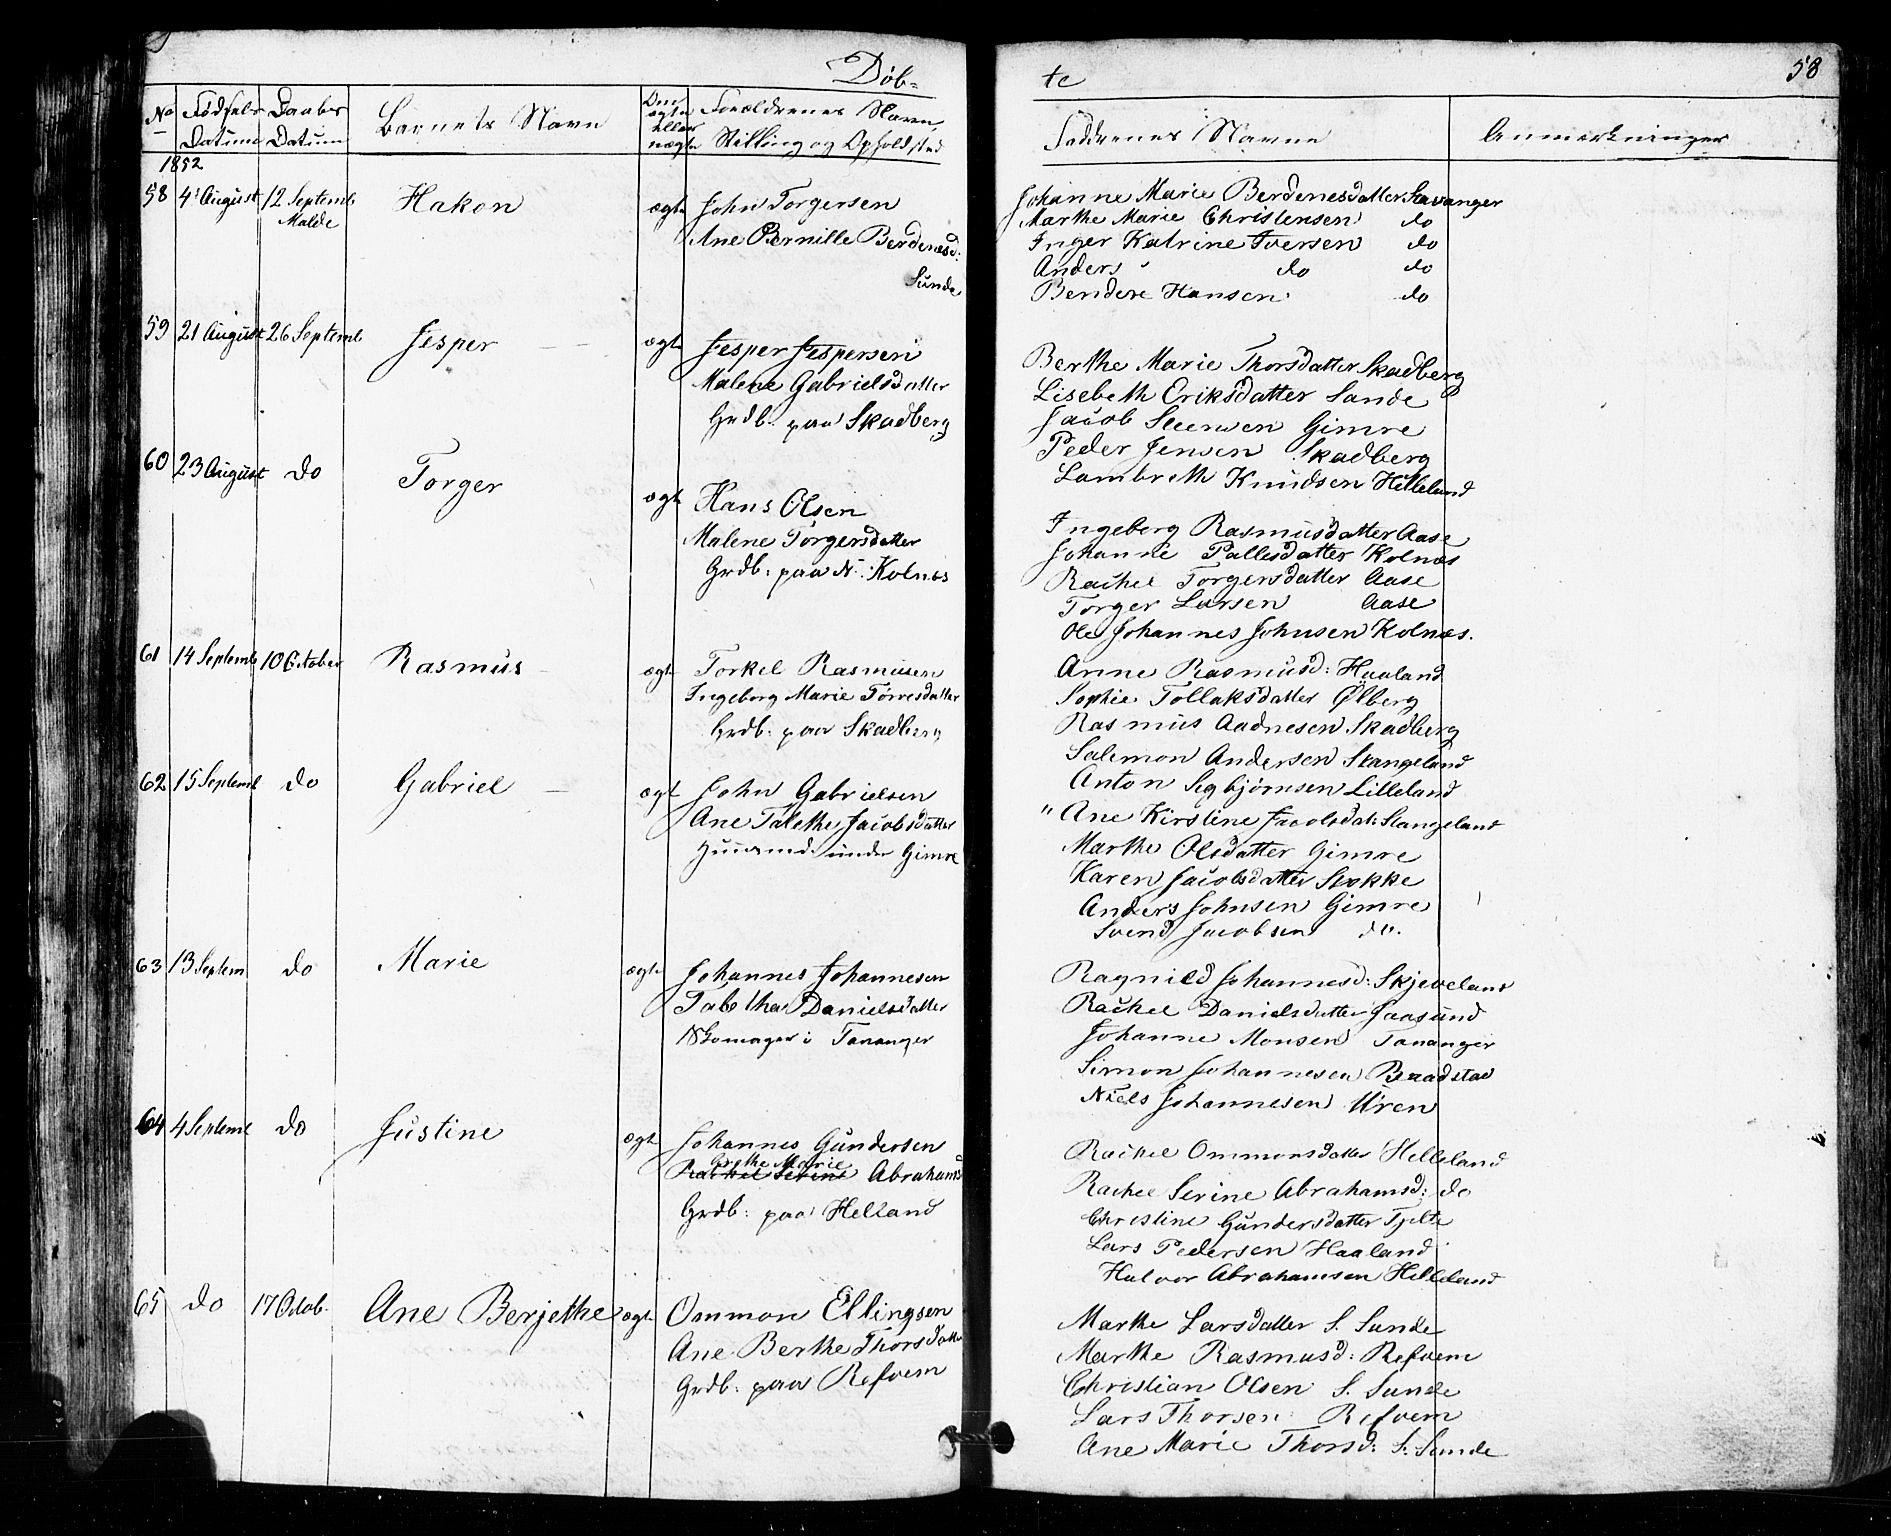 Döb-
te
58
No
Födsels Datum
Daabs Datum
Barnets Navn
Om ægte eller uægte
Forældrenes Navn, Stilling og Opholdsted
Faddrenes Navne
Anmærkninger
1852
58 4' August 12 Septemb Malde Hakon ægte John Torgersen
Ane Pernille Berdenesd:
Sunde
Johanne Marie Berdenesdatter Stavanger
Marthe Marie Christensen do
Inger Katrine Iversen do
Anders do do
Bendere Hansen do
59 21 August 26 Septemb Jesper ægte Jesper Jespersen
Malene Gabrielsdatter
Grdb. paa Skadberg
Berthe Marie Thorsdatter Skadberg
Lisebeth Eriksdatter Sande
Jacob Steensen Gimre
Peder Jensen Skadberg
Lambreth Knudsen Helleland
60 23 August do Torger ægte Hans Olsen
Malene Torgersdatter
Grdb: paa N: Kolnæs
Ingeberg Rasmusdatter Aase
Johanne Pallesdatter Kolnæs
Rachel Torgersdatter Aase
Torger Larsen Aase
Ole Johannes Johnsen Kolnæs.
61 14 Septemb 10 October Rasmus ægte Torkel Rasmusen
Ingeborg Marie Torresdatter
Grdb: paa Skadberg
Anne Rasmusd: Haaland
Sophie Tollaksdatter Ølberg
Rasmus Aadnesen Skadberg
Salemon Andersen Stangeland
Anton Segbjørnsen Lilleland
62 15 Septemb do Gabriel ægt John Gabrielsen
Ane Talethe Jacobsdatter
Huusmd. under Gimre
" Ane Kirstine Jacobsdat: Stangeland
Marthe Olsdatter Gimre
Karen Jacobsdatter Stokke
Anders Johnsen Gimre
Svend Jacobsen do.
63 13 Septem do Marie ægte Johannes Johannesen
Tabetha Danielsdatter
Skomager i Tananger
Ragnild Johannesd: Skjeveland
Rachel Danielsdatter Jaasund
Johanne Monsen Tananger
Simon Johannesen Braadstad
Niels Johannesen Uren
64 4 Septemb do Justine ægte Johannes Gundersen
Grethe Marie
Rachel Serine Abrahamsd
Grdb: paa Helland
Rachel Ommonsdatter Helleland
Rachel Serine Abrahamsd: do
Christine Gundersdatter Tjelte
Lars Pedersen Haaland
Halvor Abrahamsen Helleland
65 do 17 Octob. Ane Berjethe ægte Ommon Ellingsen
Ane Berthe Thorsdatter
Grdb: paa Refvem
Marthe Larsdatter S. Sunde
Marthe Rasmusd: Refvem
Christian Olsen S. Sunde
Lars Thorsen Refvem
Ane Marie Thorsd: S: Sunde